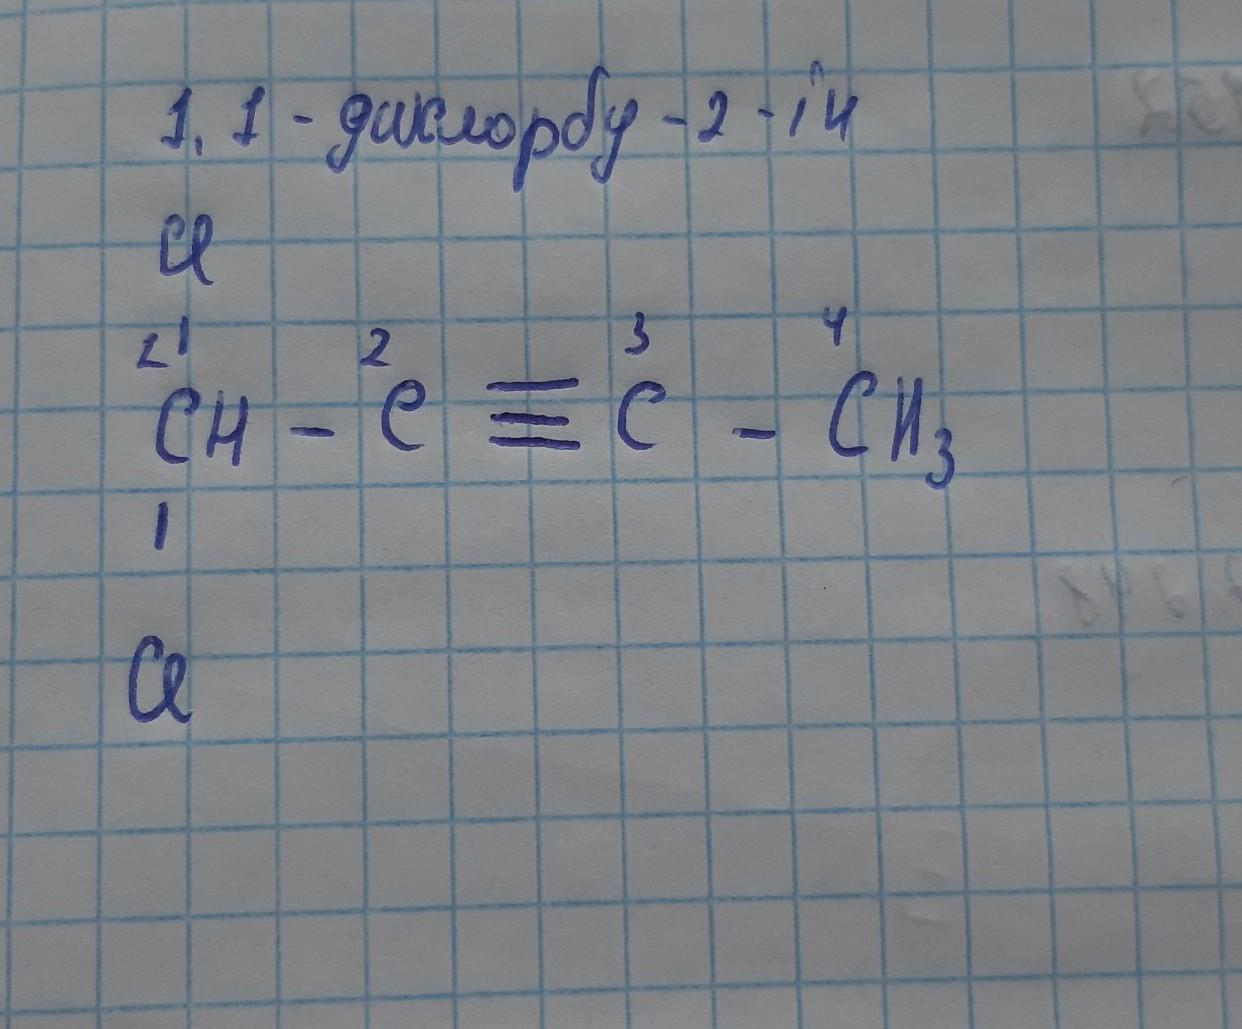 1,1-дихлорбу-2-ін
Cl
1 | 2 3 4
CH - C ≡ C - CH₃
|
Cl